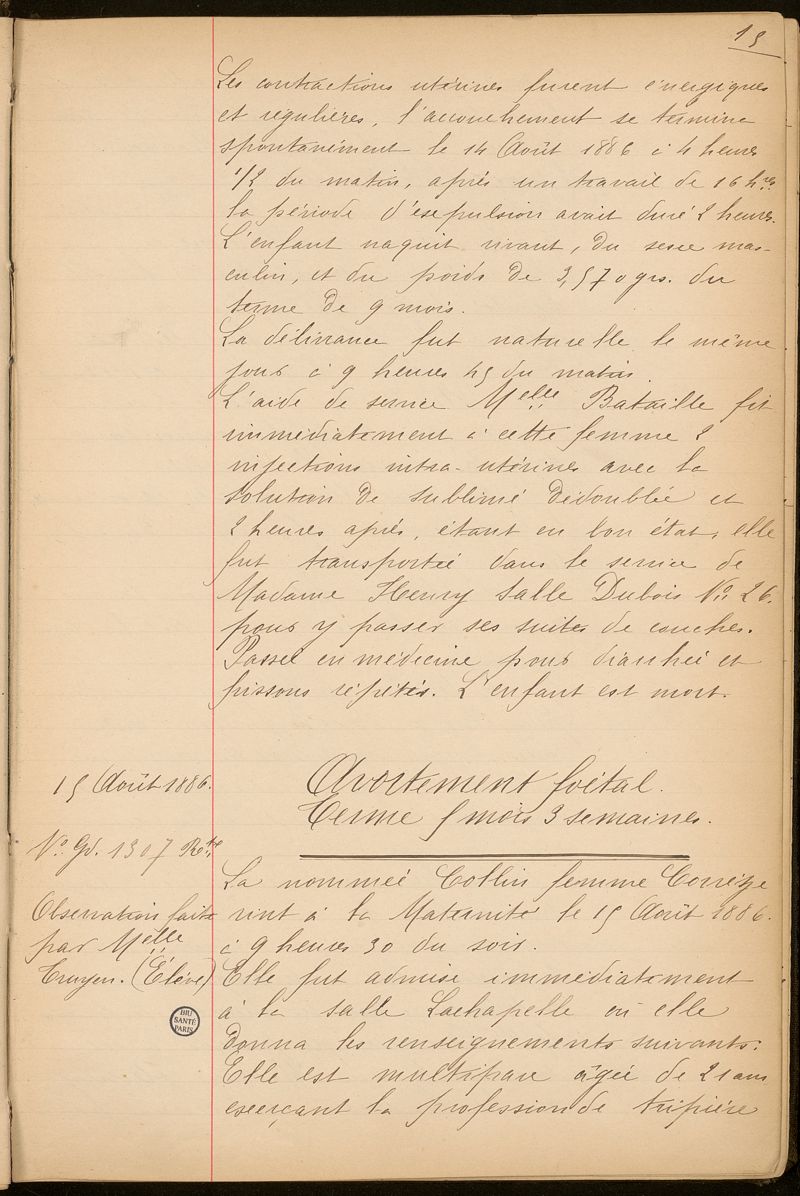 15
Les contractions utérines furent énergiques
et régulières, l'accouchement se termina
spontanément le 14 Août 1886 à 4 heures
1/2 du matin, après un travail de 16 hres
la période d'expulsion avait duré 2 heures.
L'enfant naquit vivant, du sexe mas-
culin, et du poids de 3,570 grs. du
terme de 9 mois.
La délivrance fut naturelle le même
jour à 9 heures 45 du matin
L'aide de service Melle Bataille fit
immédiatement à cette femme 2
injections intra-utérines avec la
solution de sublimé dédoublée et
2 heures après, étant en bon état, elle
fut transportée dans le service de
Madame Henry Salle Dubois No 26.
pour y passer ses suites de couches.
Passée en médecine pour diarrhée et
frissons répétés. L'enfant est mort.
15 Août 1886.
Avortement foétal.
Terme 5 mois 3 semaines.
No Gl. 1307
La nommée Collin femme Corrèze
Observation faite
vint à la Maternité le 15 Août 1886.
par Melle
à 9 heures 30 du soir.
Truyen. (Élève)
Elle fut admise immédiatement
à la salle Lachapelle où elle
BIU
SANTÉ
PARIS
donna les renseignements suivants:
Elle est multipare âgée de 21 ans
exerçant la profession de tripière